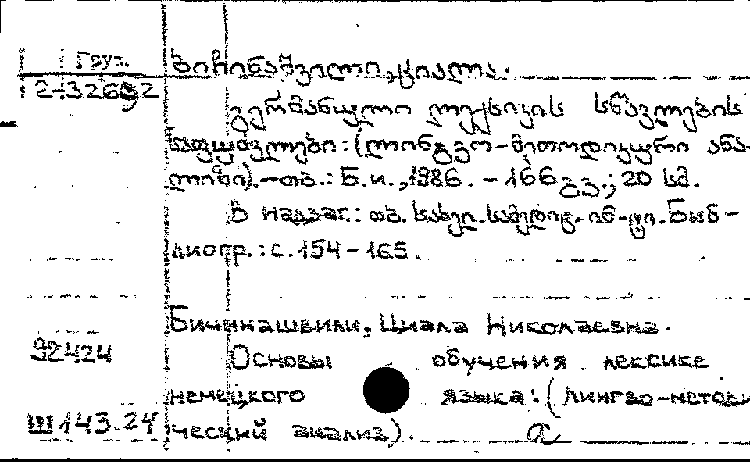 Груз. ბიჩინაშვილი, ციალა.
2-32652
გერმანული ლექსიკის სწავლების
საფუძვლები: (ლინგვო-მეთოდიკური ანა-
ლიზი).-თბ.: Б.и., 1986. - 166 გვ.; 20 სმ.
В надзаг.: თბ. სახელ. სამედიც. ინ-ტი. Биб-
лиогр.: с. 154-165.
Бичинашвили, Циала Николаевна.
92424 Основы обучения лексике
немецкого языка: (лингво-методи
Ш143.24 ческий анализ). a